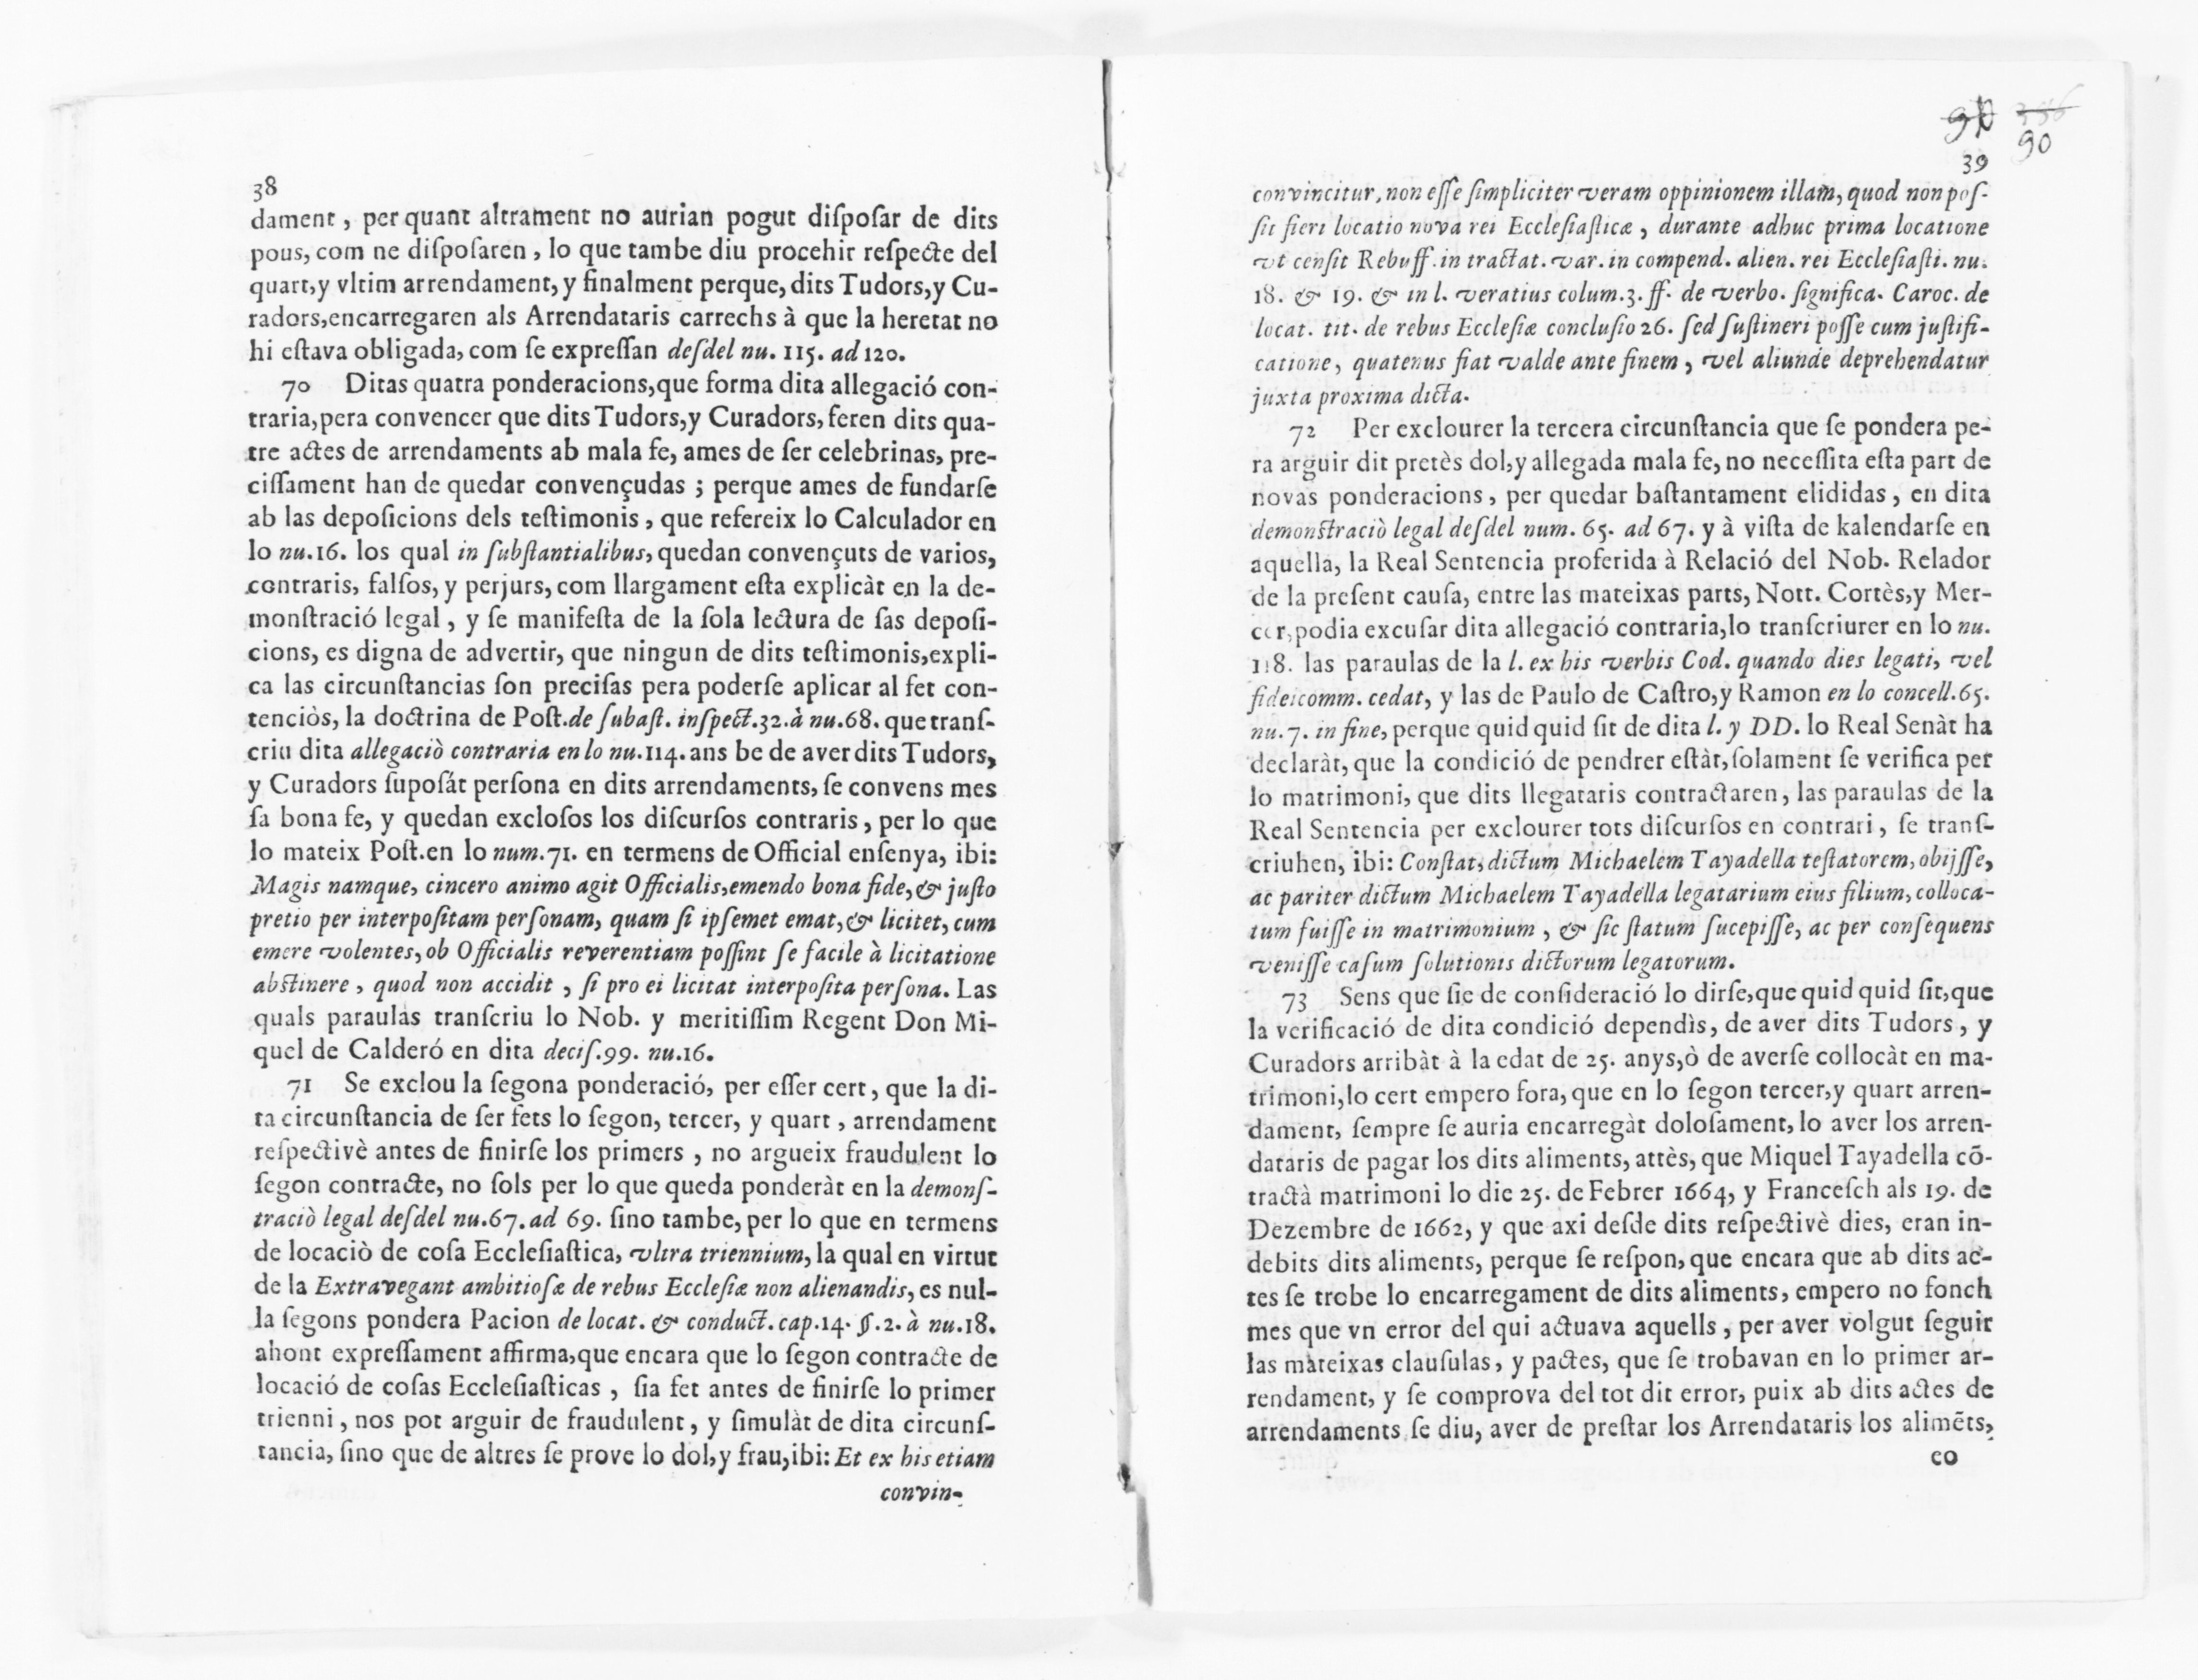 38
dament, per quant altrament no aurian pogut diſpoſar de dits
pous, com ne diſpoſaren, lo que tambe diu procehir reſpecte del
quart, y vltim arrendament, y finalment perque, dits Tudors, y Cu-
radors, encarregaren als Arrendataris carrechs à que la heretat no
hi eſtava obligada, com ſe expreſſan deſdel nu. 115. ad 120.
70 Ditas quatra ponderacions, que forma dita allegació con-
traria, pera convencer que dits Tudors, y Curadors, feren dits qua-
tre actes de arrendaments ab mala fe, ames de ſer celebrinas, pre-
ciſſament han de quedar convençudas ; perque ames de fundarſe
ab las depoſicions dels teſtimonis, que refereix lo Calculador en
lo nu.16. los qual in ſubſtantialibus, quedan convençuts de varios,
contraris, falſos, y perjurs, com llargament eſta explicàt en la de-
monſtració legal, y ſe manifeſta de la ſola lectura de ſas depoſi-
cions, es digna de advertir, que ningun de dits teſtimonis, expli-
ca las circunſtancias ſon preciſas pera poderſe aplicar al fet con-
tenciòs, la doctrina de Poſt. de ſubaſt. inſpect.32. à nu.68. que tranſ-
criu dita allegaciò contraria en lo nu.114. ans be de aver dits Tudors,
y Curadors ſupoſát perſona en dits arrendaments, ſe convens mes
ſa bona fe, y quedan excloſos los diſcurſos contraris, per lo que
lo mateix Poſt. en lo num.71. en termens de Official enſenya, ibi:
Magis namque, cincero animo agit Officialis, emendo bona fide, & juſto
pretio per interpoſitam perſonam, quam ſi ipſemet emat, & licitet, cum
emere volentes, ob Officialis reverentiam poſſint ſe facile à licitatione
abſtinere, quod non accidit, ſi pro ei licitat interpoſita perſona. Las
quals paraulas tranſcriu lo Nob. y meritiſſim Regent Don Mi-
quel de Calderó en dita deciſ.99. nu.16.
71 Se exclou la ſegona ponderació, per eſſer cert, que la di-
ta circunſtancia de ſer fets lo ſegon, tercer, y quart, arrendament
reſpectivè antes de finirſe los primers, no argueix fraudulent lo
ſegon contracte, no ſols per lo que queda ponderàt en la demonſ-
traciò legal deſdel nu.67. ad 69. ſino tambe, per lo que en termens
de locaciò de coſa Eccleſiaſtica, vltra triennium, la qual en virtut
de la Extravegant ambitioſæ de rebus Eccleſiæ non alienandis, es nul-
la ſegons pondera Pacion de locat. & conduct. cap.14. §.2. à nu.18.
ahont expreſſament affirma, que encara que lo ſegon contracte de
locació de coſas Eccleſiaſticas, ſia fet antes de finirſe lo primer
trienni, nos pot arguir de fraudulent, y ſimulàt de dita circunſ-
tancia, ſino que de altres ſe prove lo dol, y frau, ibi: Et ex his etiam
convin-
90 90
39
convincitur, non eſſe ſimpliciter veram oppinionem illam, quod non poſ-
ſit fieri locatio nova rei Eccleſiaſticæ, durante adhuc prima locatione
vt cenſit Rebuff. in tractat. var. in compend. alien. rei Eccleſiaſti. nu.
18. & 19. & in l. veratius colum.3. ff. de verbo. ſignifica. Caroc. de
locat. tit. de rebus Eccleſiæ concluſio 26. ſed ſuſtineri poſſe cum juſtifi-
catione, quatenus fiat valde ante finem, vel aliunde deprehendatur
juxta proxima dicta.
72 Per exclourer la tercera circunſtancia que ſe pondera pe-
ra arguir dit pretès dol, y allegada mala fe, no neceſſita eſta part de
novas ponderacions, per quedar baſtantament elididas, en dita
demonſtraciò legal deſdel num. 65. ad 67. y à viſta de kalendarſe en
aquella, la Real Sentencia proferida à Relació del Nob. Relador
de la preſent cauſa, entre las mateixas parts, Nott. Cortès, y Mer-
cer, podia excuſar dita allegació contraria, lo tranſcriurer en lo nu.
118. las paraulas de la l. ex his verbis Cod. quando dies legati, vel
fideicomm. cedat, y las de Paulo de Caſtro, y Ramon en lo concell.65.
nu.7. in fine, perque quid quid ſit de dita l. y DD. lo Real Senàt ha
declaràt, que la condició de pendrer eſtàt, ſolament ſe verifica per
lo matrimoni, que dits llegataris contractaren, las paraulas de la
Real Sentencia per exclourer tots diſcurſos en contrari, ſe tranſ-
criuhen, ibi: Conſtat, dictum Michaelem Tayadella teſtatorem, obijſſe,
ac pariter dictum Michaelem Tayadella legatarium eius filium, colloca-
tum fuiſſe in matrimonium, & ſic ſtatum ſucepiſſe, ac per conſequens
veniſſe caſum ſolutionis dictorum legatorum.
73 Sens que ſie de conſideració lo dirſe, que quid quid ſit, que
la verificació de dita condició dependìs, de aver dits Tudors, y
Curadors arribàt à la edat de 25. anys, ò de averſe collocàt en ma-
trimoni, lo cert empero fora, que en lo ſegon tercer, y quart arren-
dament, ſempre ſe auria encarregàt doloſament, lo aver los arren-
dataris de pagar los dits aliments, attès, que Miquel Tayadella cõ-
tractà matrimoni lo die 25. de Febrer 1664, y Franceſch als 19. de
Dezembre de 1662, y que axi deſde dits reſpectivè dies, eran in-
debits dits aliments, perque ſe reſpon, que encara que ab dits ac-
tes ſe trobe lo encarregament de dits aliments, empero no fonch
mes que vn error del qui actuava aquells, per aver volgut ſeguir
las mateixas clauſulas, y pactes, que ſe trobavan en lo primer ar-
rendament, y ſe comprova del tot dit error, puix ab dits actes de
arrendaments ſe diu, aver de preſtar los Arrendataris los alimẽts,
co